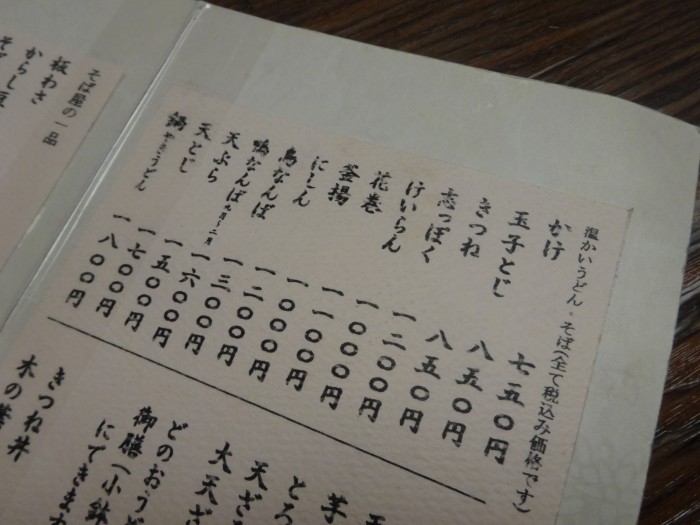 温かいうどん・そば(全て税込み価格です)
かけ 七五〇円
玉子とじ 八五〇円
きつね 八五〇円
志っぽく 一二〇〇円
けいらん 一〇〇〇円
花巻 一一〇〇円
釜揚 一〇〇〇円
にしん 一二〇〇円
鳥なんば 一三〇〇円
鴨なんば 九月〜二月 一六〇〇円
天ぷら 一五〇〇円
天とじ 一七〇〇円
鍋やきうどん 一八〇〇円
芋
とろ
天ざ
大天ざ
どのおうど
御膳(小鉢
にできま
きつね丼
木の葉
そば屋の一品
板わさ
からし豆